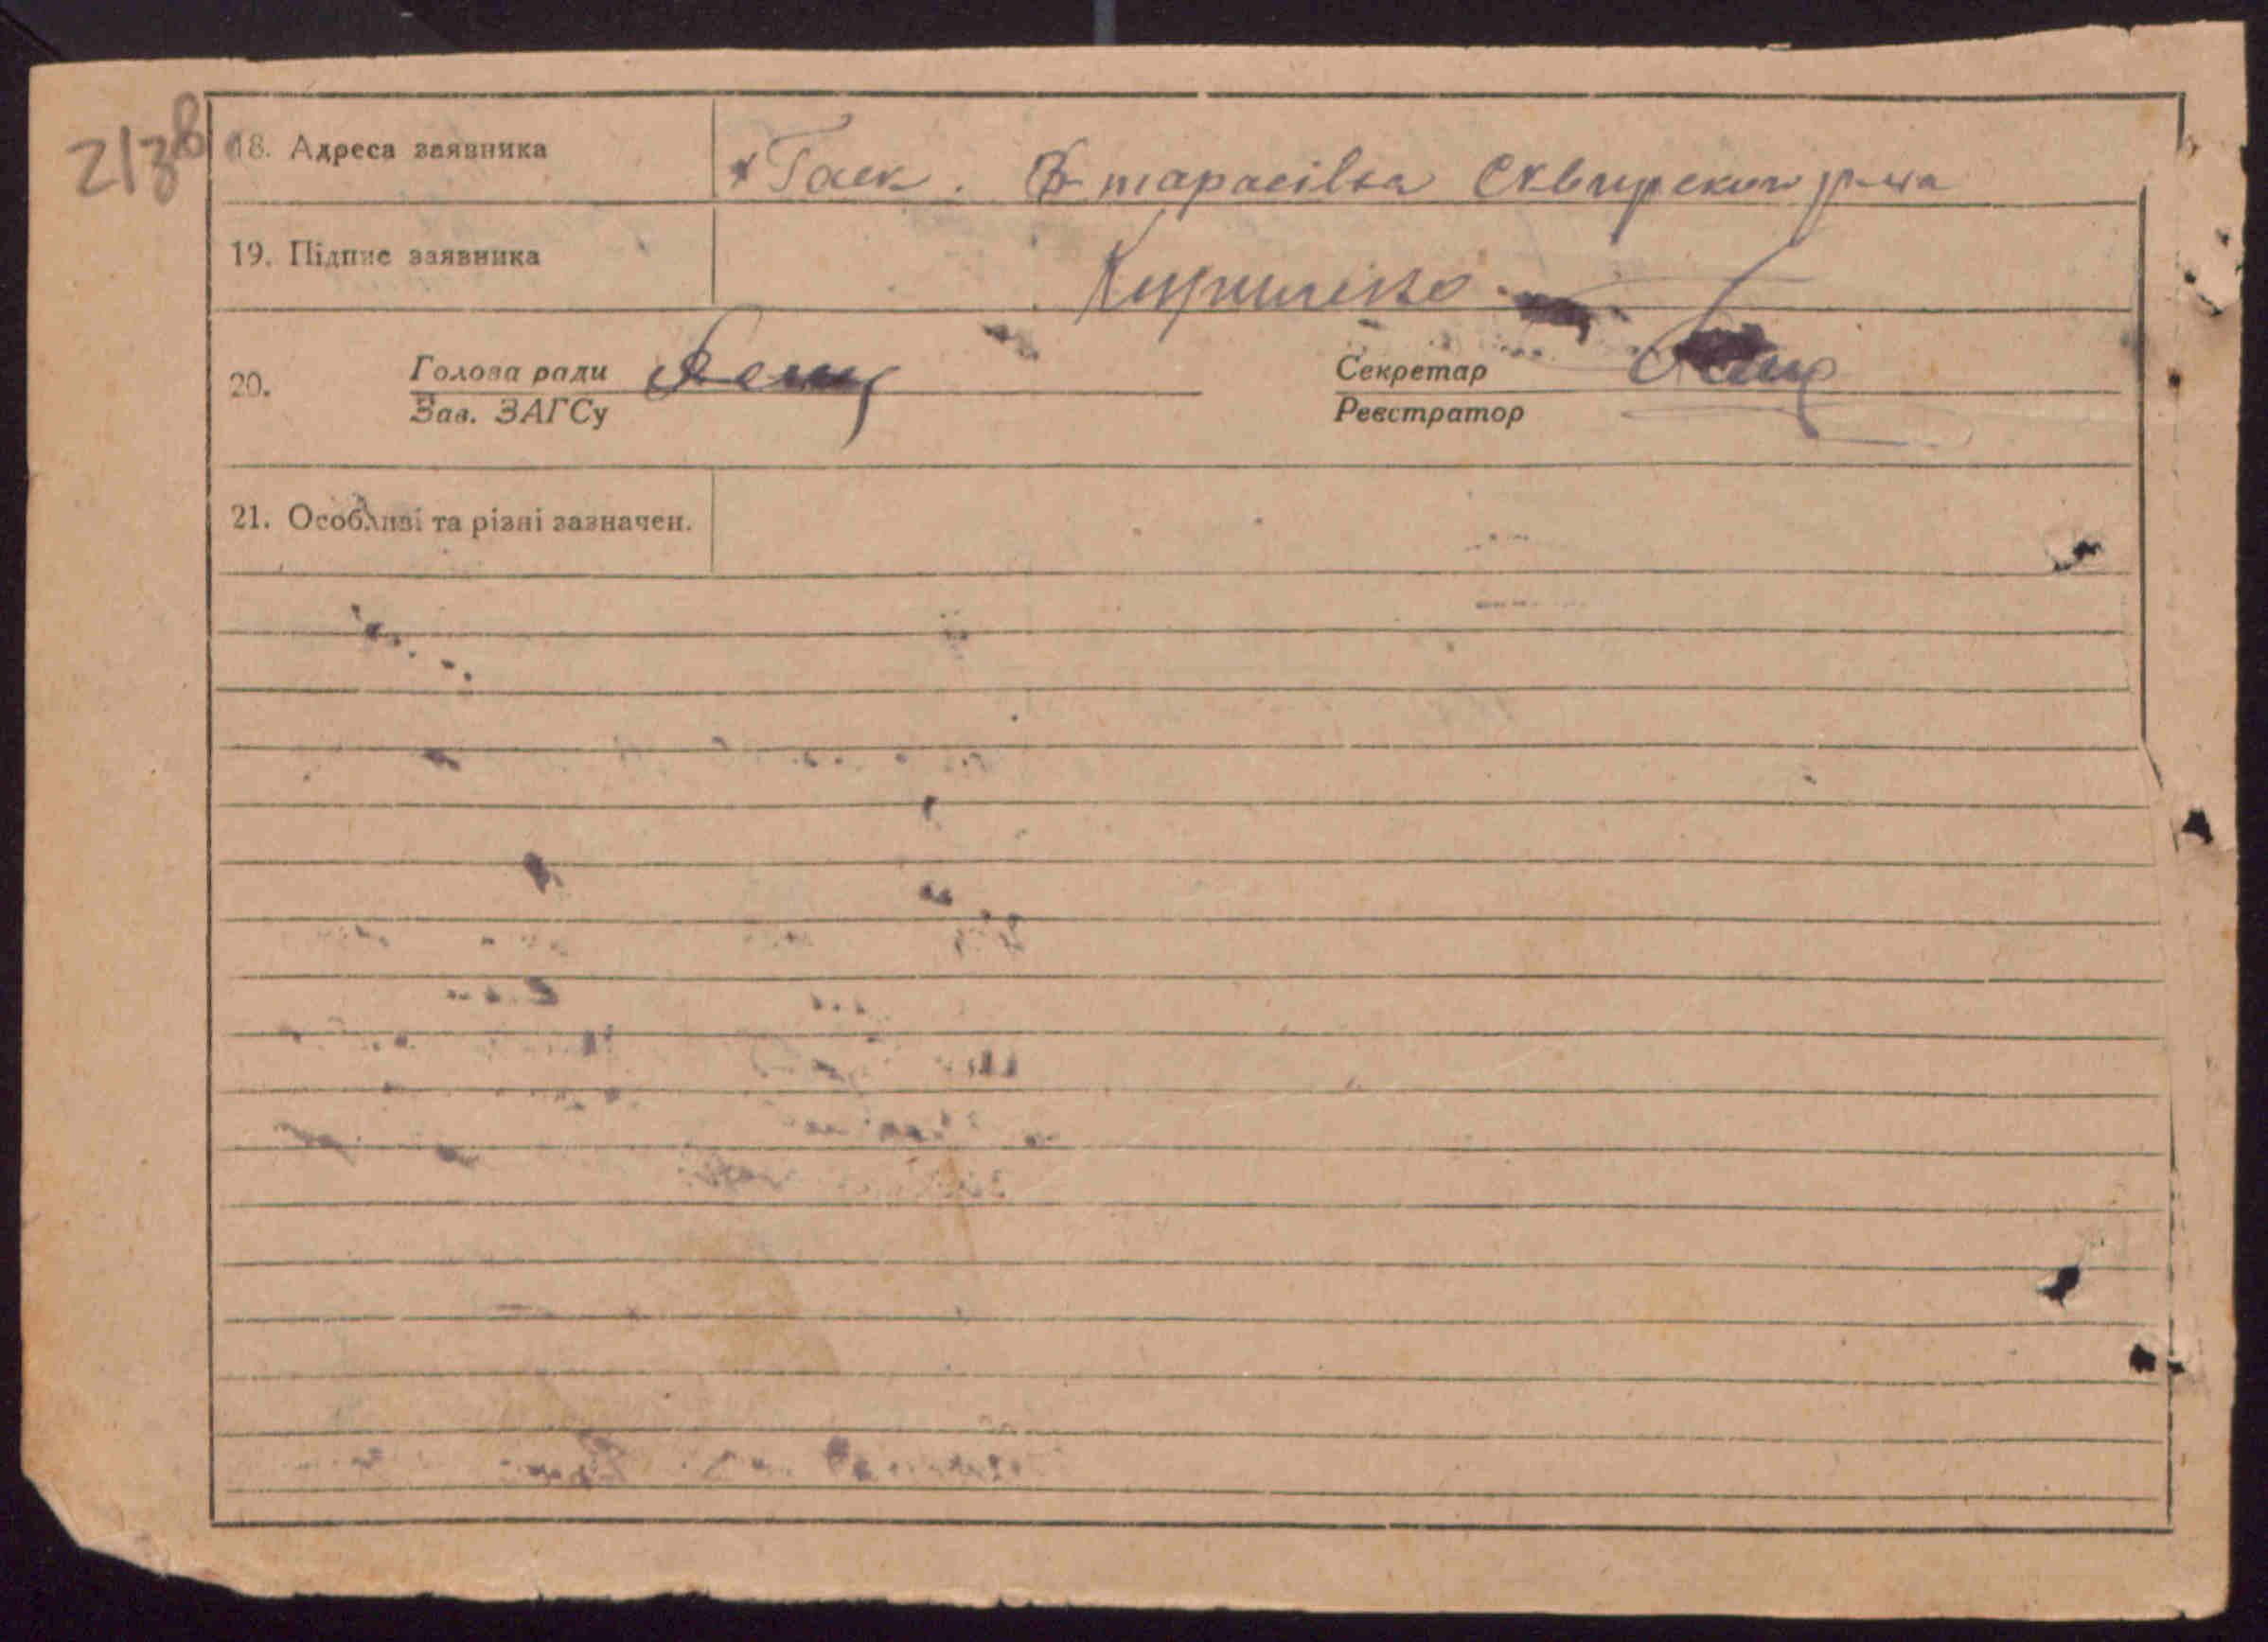 213в
18. Адреса заявника
тарасівка Сквирского р-на
19. Підпис заявника
Кириленко
20. Голова ради Секретар
Зав. ЗАГСу Реєстратор
21. Особливі та різні зазначен.